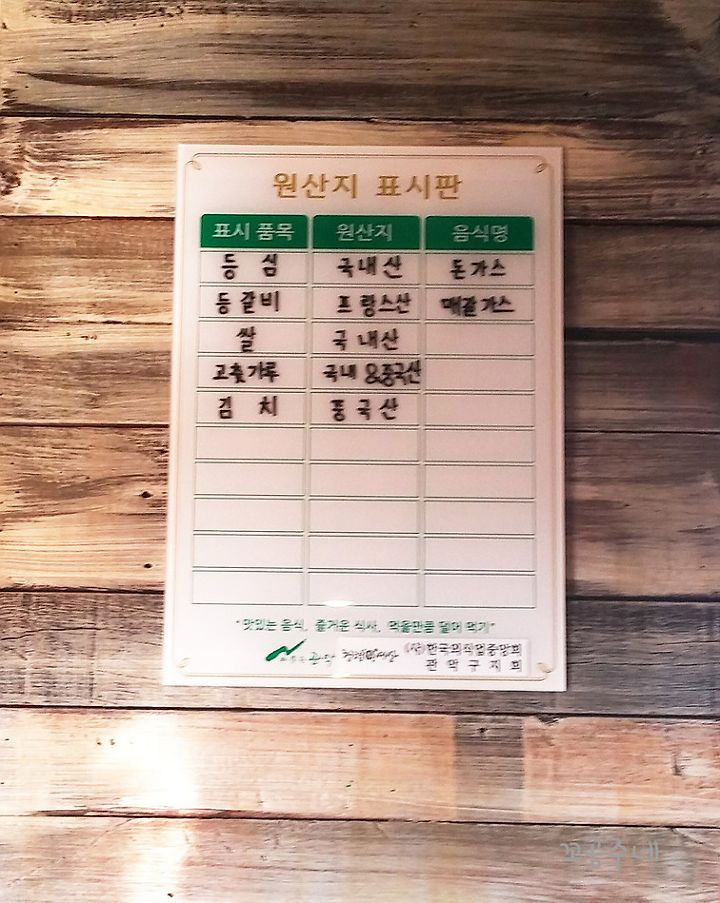 원산지 표시판
표시 품목 원산지 음식명
등 심 국내산 돈가스
등갈비 프랑스산 매갈가스
쌀 국내산
고춧가루 국내&중국산
김 치 중국산
"맛있는 음식, 즐거운 식사, 먹을만큼 덜어 먹기"
관악 (사)한국외식업중앙회
관악구지회